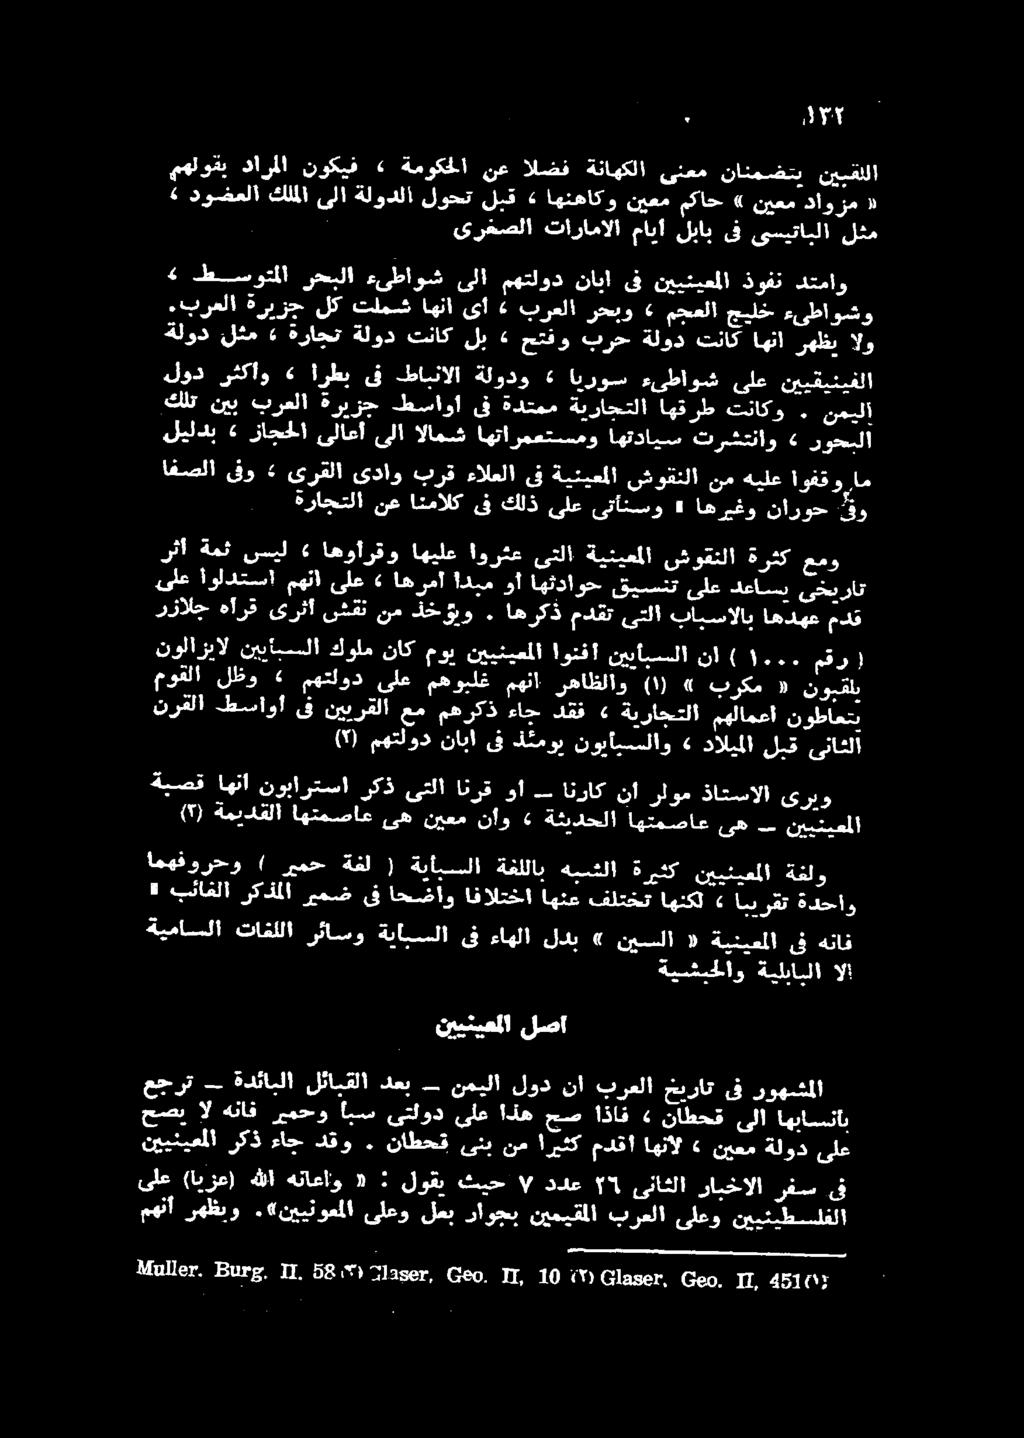 ١٣٢
اللقبين يتضمنان معنى الكهانة فضلا عن الحكومة ، فيكون المراد بقولهم
« مزواد معين » حاكم معين وكاهنها ، قبل تحول الدولة الى الملك العضود ،
مثل الباتيسى فى بابل أيام الامارات الصغرى
وامتد نفوذ المعينيين فى ابان دولتهم الى شواطىء البحر المتوسط ،
وشواطىء خليج العجم ، وبحر العرب ، أى انها شملت كل جزيرة العرب.
ولا يظهر انها كانت دولة حرب وفتح ، بل كانت دولة تجارة ، مثل دولة
الفينيقيين على شواطىء سوريا ، ودولة الانباط فى بطرا ، وأكثر دول
اليمن . وكانت طرقها التجارية ممتدة فى أواسط جزيرة العرب بين تلك
البحور ، وانتشرت سيادتها ومستعمراتها شمالا الى أعالى الحجاز ، بدليل
ما وقفوا عليه من النقوش المعينية فى العلاء قرب وادى القرى ، وفى الصفا
وفى حوران وغيرها ٠ وسنأتى على ذلك فى كلامنا عن التجارة
ومع كثرة النقوش المعينية التى عثروا عليها وقرأوها ، ليس ثمة أثر
تاريخى يساعد على تنسيق حوادثها أو مبدأ أمرها ، على انهم استدلوا على
قدم عهدها بالاسباب التى تقدم ذكرها . ويؤخذ من نقش أثرى قرأه جلازر
( رقم ١٠٠٠ ) ان السبأيين أفنوا المعينيين يوم كان ملوك السبأيين لايزالون
يلقبون « مكرب » (١) والظاهر انهم غلبوهم على دولتهم ، وظل القوم
يتعاطون أعمالهم التجارية ، فقد جاء ذكرهم مع القريين فى أواسط القرن
الثانى قبل الميلاد ، والسبأيون يومئذ فى ابان دولتهم (٢)
ويرى الاستاذ مولر ان كارنا ــ أو قرنا التى ذكر استرابون أنها قصبة
المعينيين ــ هى عاصمتها الحديثة ، وان معين هى عاصمتها القديمة (٣)
ولغة المعينيين كثيرة الشبه باللغة السبأية ( لغة حمير ) وحروفهما
واحدة تقريبا ، لكنها تختلف عنها اختلافا واضحا فى ضمير المذكر الغائب ٠
فانه فى المعينية « السين » بدل الهاء فى السبأية وسائر اللغات السامية
الا البابلية والحبشية
أصل المعينيين
المشهور فى تاريخ العرب ان دول اليمن ــ بعد القبائل البائدة ــ ترجع
بأنسابها الى قحطان ، فاذا صح هذا على دولتى سبأ وحمير فانه لا يصح
على دولة معين ، لأنها أقدم كثيرا من بنى قحطان . وقد جاء ذكر المعينيين
فى سفر الاخبار الثانى ٢٦ عدد ٧ حيث يقول : « وأعانه الله (عزيا) على
الفلسطينيين وعلى العرب المقيمين بجوار بعل وعلى المعونيين». ويظهر أنهم
(١) Glaser, Geo. II, 451 (٢) Glaser, Geo. II, 10 (٣) Muller. Burg. II. 58